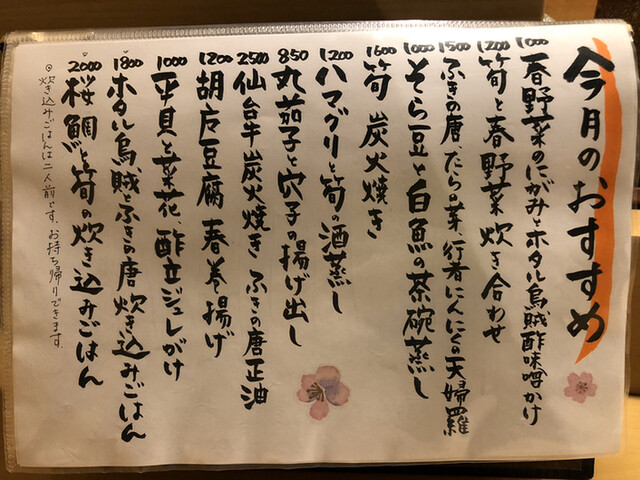 今月のおすすめ
1000 春野菜のにがみとホタル烏賊酢味噌かけ
1200 筍と春野菜炊き合わせ
1500 ふきの唐、たらの芽 行者にんにくの天婦羅
1000 そら豆と白魚の茶碗蒸し
1600 筍 炭火焼き
1200 ハマグリと筍の酒蒸し
850 丸茄子と穴子の揚げ出し
2500 仙台牛炭火焼き ふきの唐正油
1200 胡麻豆腐 春巻揚げ
1000 平貝と菜花、酢立ジュレがけ
1800 ホタル烏賊とふきの唐炊き込みごはん
2000 桜鯛と筍の炊き込みごはん
◎炊き込みごはんは二人前です。お持ち帰りできます。